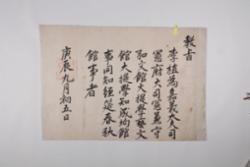 敎旨
李植爲嘉義大夫司
憲府大司憲兼守
弘文館大提學藝文
館大提學知成均館
事同知經筵春秋
館事者
庚辰九月初五日